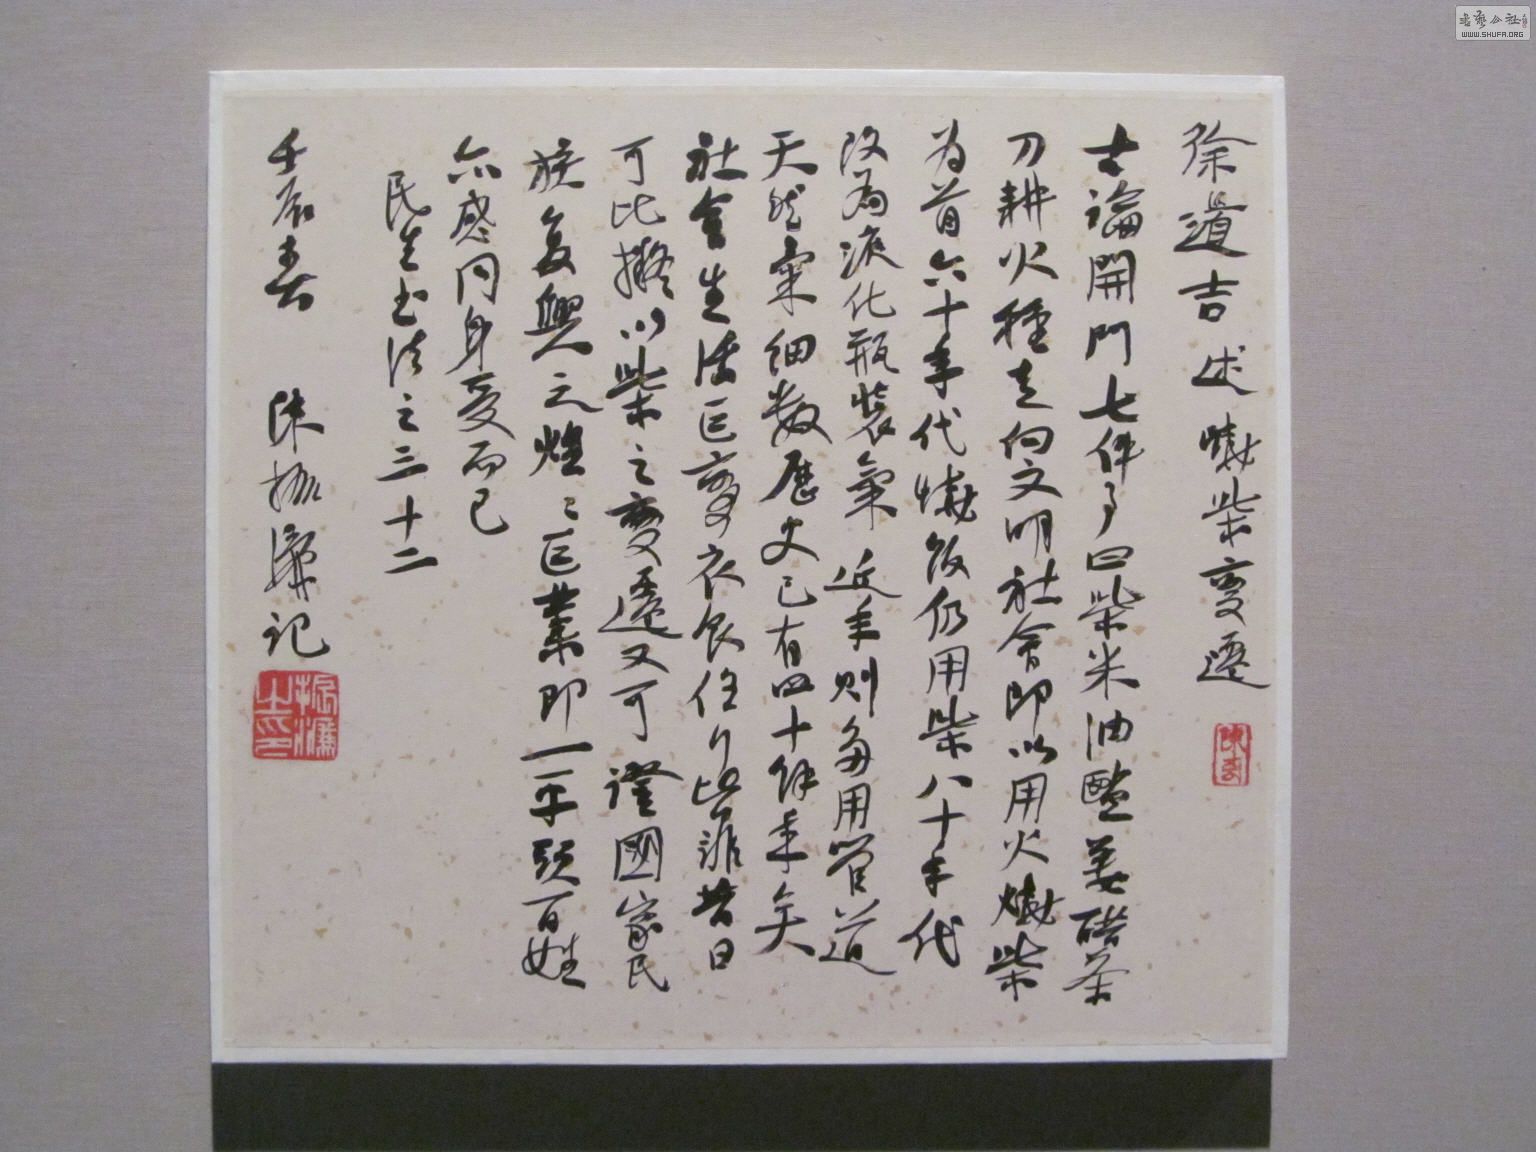 徐道吉述燒柴變遷
古論開門七件事曰柴米油鹽姜醋茶
刀耕火種走向文明社會即以用火燒柴
为首六十年代燒飯仍用柴八十年代
改為液化瓶裝氣近年則多用管道
天然氣細數歷史已有四十餘年矣
社會生活巨變衣食住行皆非昔日
可比擬以柴之變遷又可證國家民
族复興之煌〻巨業即一平頭百姓
亦感同身受而已
民生书法之三十二
壬辰春 陳振濂记
振濂之印
書藝公社
WWW.SHUFA.ORG